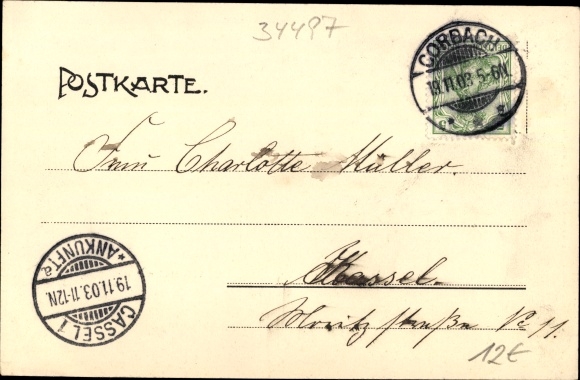 34497
CORBACH
19.11.03.5-6N.
POSTKARTE.
Frau Charlotte Müller.
Kassel.
Moritzstraße No 11.
CASSEL 1
19.11.03.11-12N.
*ANKUNFT a
12€